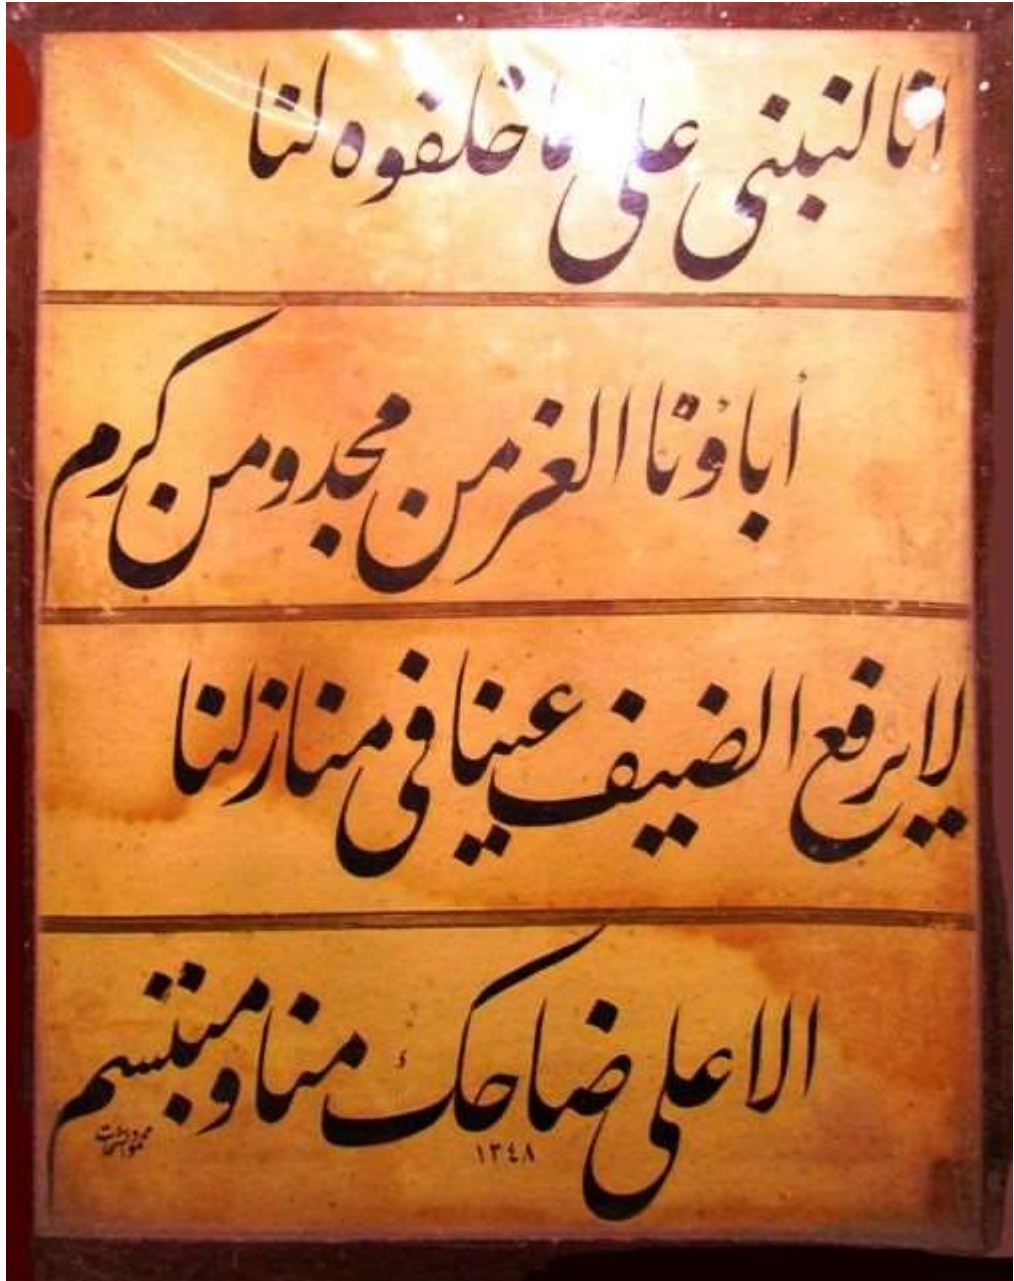 انا لنبني على ما خلفوه لنا
أباؤنا الغر من مجد ومن كرم
لا يرفع الضيف عينا في منازلنا
الا على ضاحك منا ومبتسم
١٣٤٨